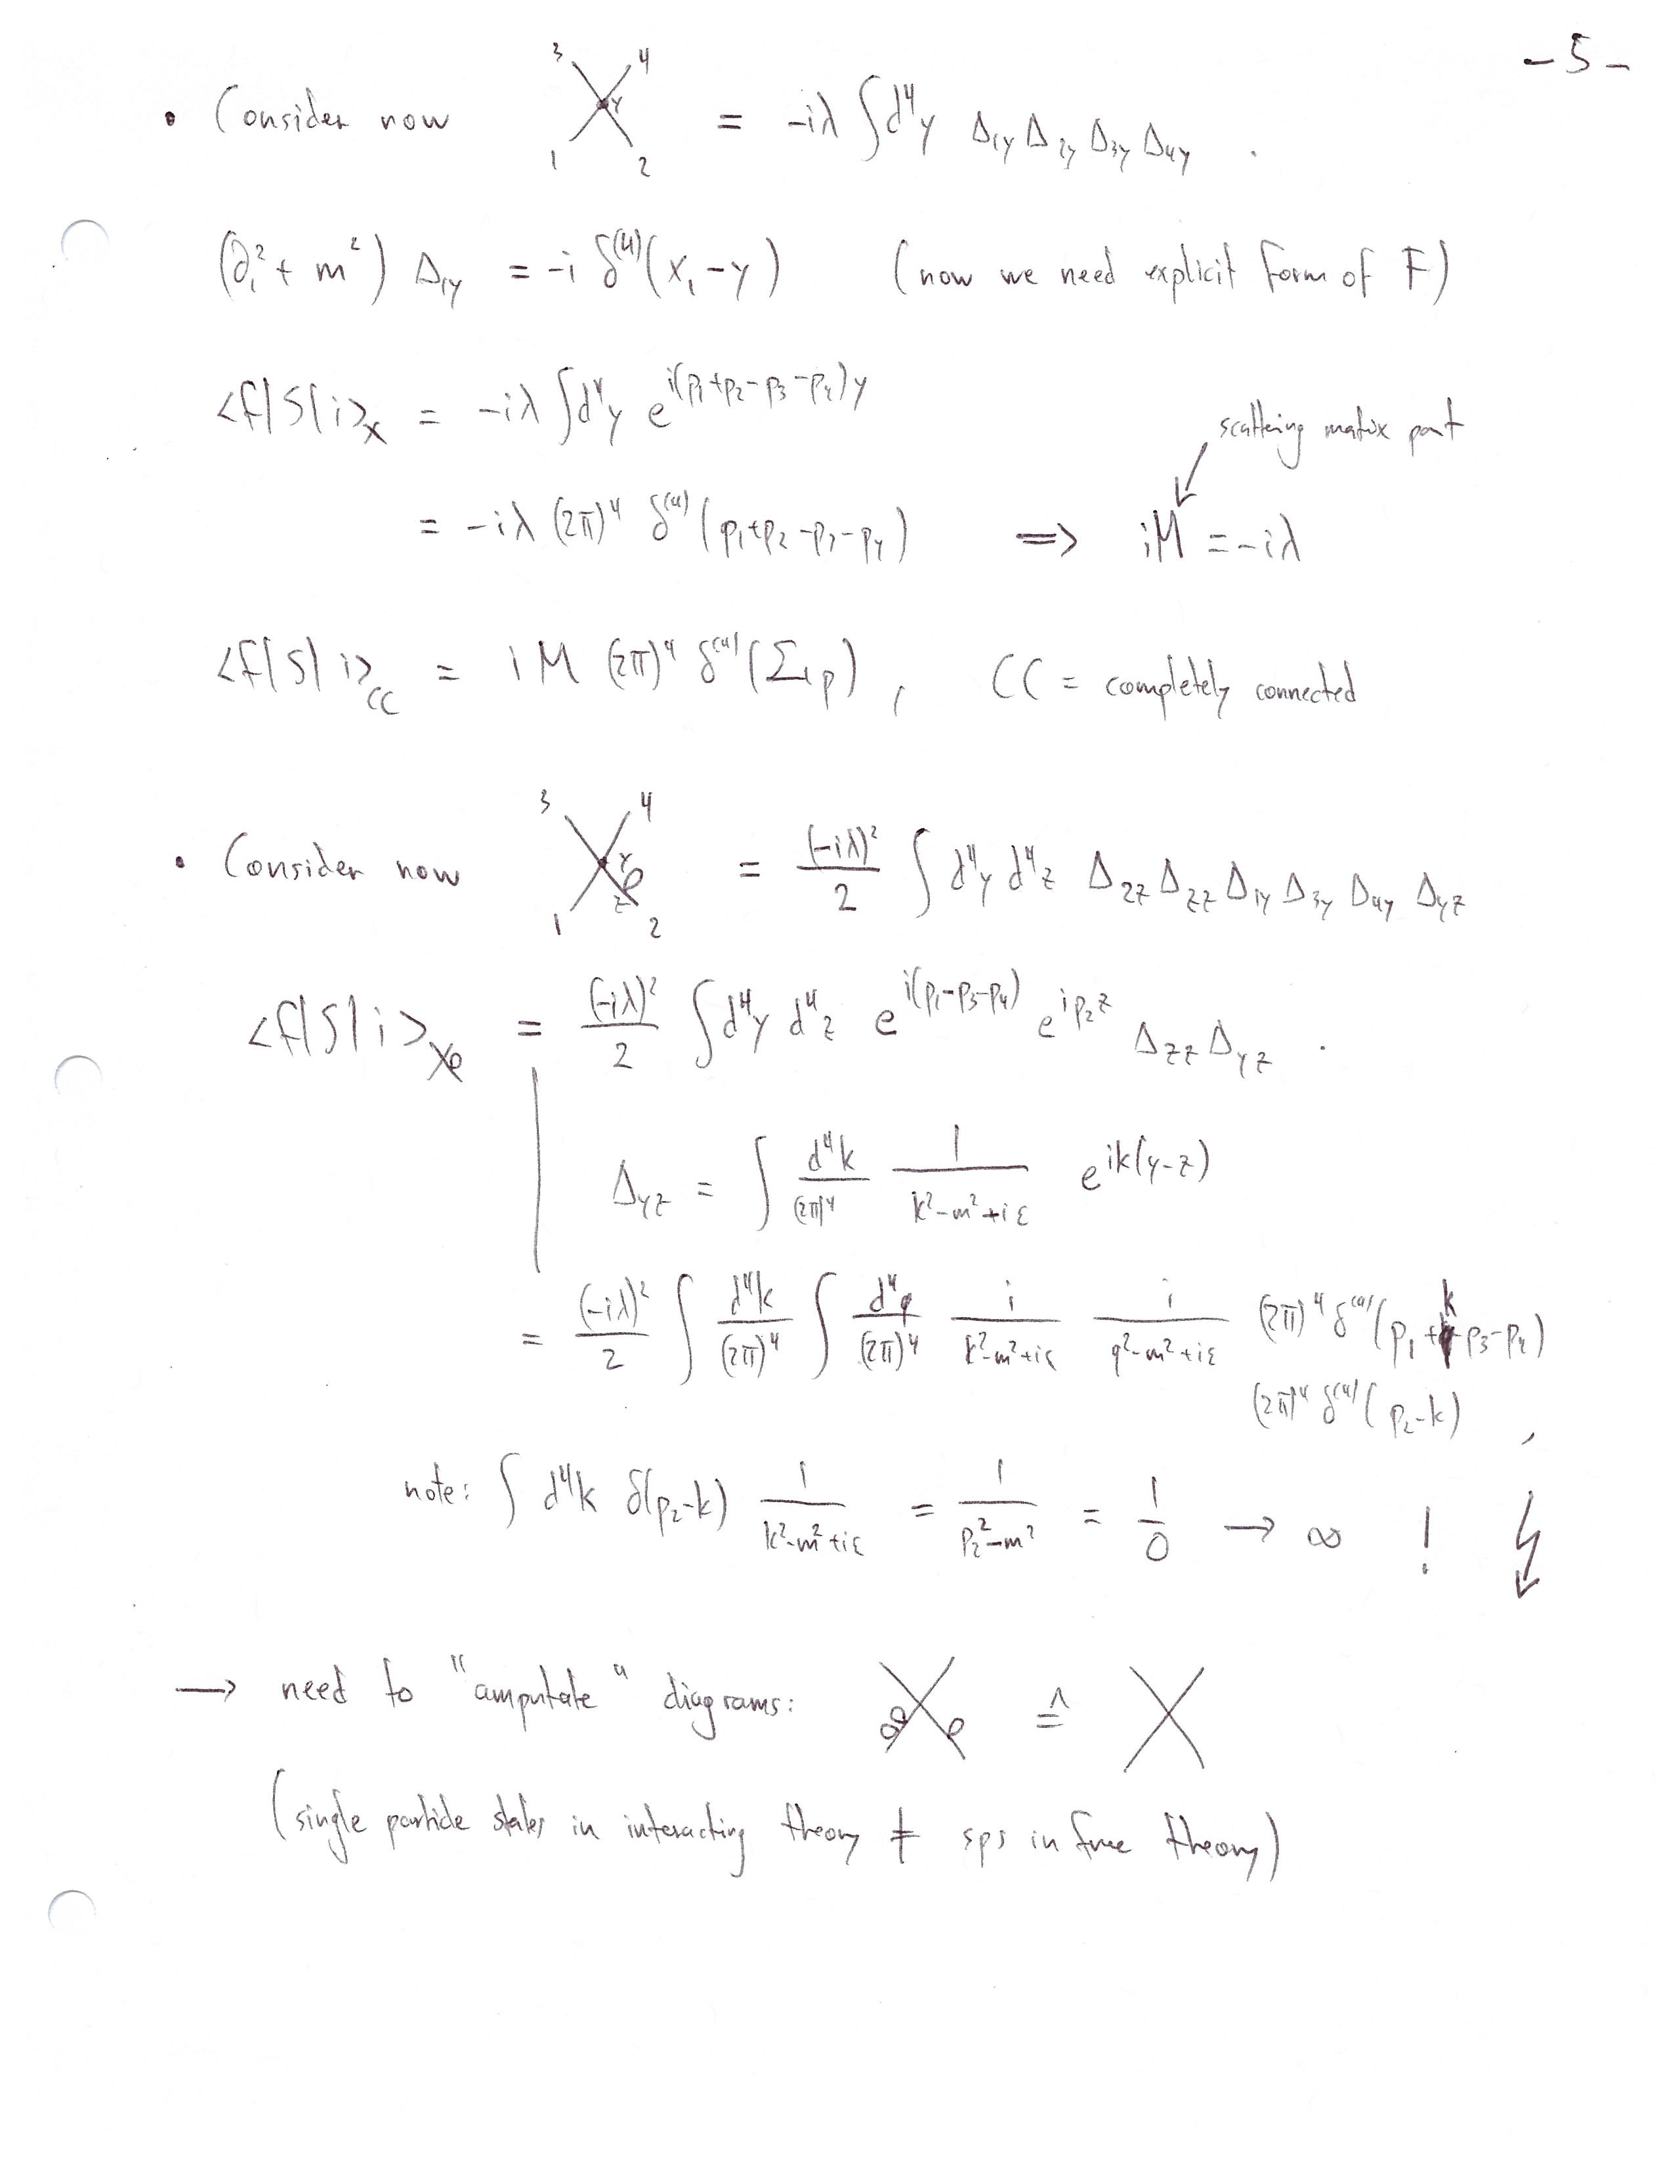 - 5 -
3 4
• Consider now Y = -iλ ∫d⁴y Δ₁y Δ₂y Δ₃y Δ₄y .
1 2
(∂₁² + m²) Δ₁y = -i δ⁽⁴⁾(x₁ - y) (now we need explicit form of F)
<f|S|i>ₓ = -iλ ∫d⁴y e^{i(p₁+p₂-p₃-p₄)y}
scattering matrix part
= -iλ (2π)⁴ δ⁽⁴⁾(p₁+p₂-p₃-p₄) ⟹ iM = -iλ
<f|S|i>_{CC} = iM (2π)⁴ δ⁽⁴⁾(Σp) , CC = completely connected
3 4
• Consider now Y z = (-iλ)²/2 ∫ d⁴y d⁴z Δ₂z Δzz Δ₁y Δ₃y Δ₄y Δyz
1 2
<f|S|i> = (-iλ)²/2 ∫d⁴y d⁴z e^{i(p₁-p₃-p₄)} e^{ip₂z} Δzz Δyz .
Δyz = ∫ d⁴k/(2π)⁴ 1/(k²-m²+iε) e^{ik(y-z)}
= (-iλ)²/2 ∫ d⁴k/(2π)⁴ ∫ d⁴q/(2π)⁴ i/(k²-m²+iε) i/(q²-m²+iε) (2π)⁴ δ⁽⁴⁾(p₁+k-p₃-p₄)
(2π)⁴ δ⁽⁴⁾(p₂-k) ,
note: ∫ d⁴k δ(p₂-k) 1/(k²-m²+iε) = 1/(p₂²-m²) = 1/0 → ∞ !
→ need to "amputate" diagrams: ≙
(single particle states in interacting theory ≠ sps in free theory)